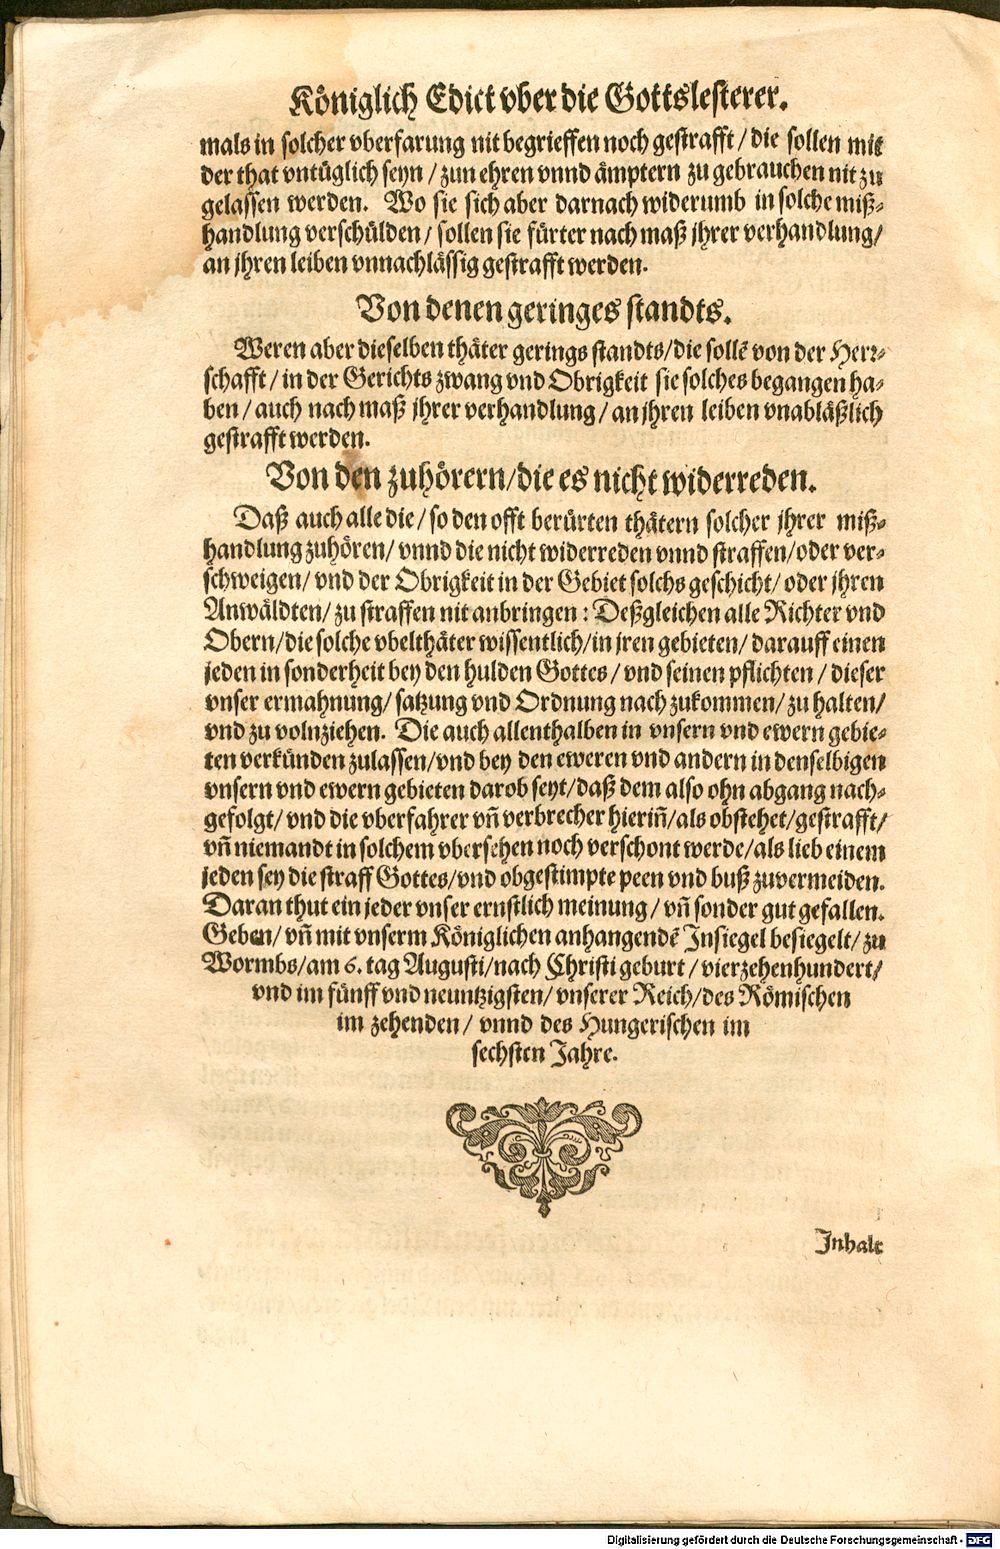 Königlich Edict vber die Gottslesterer.
mals in solcher vberfarung nit begrieffen noch gestrafft / die sollen mit
der that vntüglich seyn / zun ehren vnnd ämptern zu gebrauchen nit zu
gelassen werden. Wo sie sich aber darnach widerumb in solche miß-
handlung verschülden / sollen sie fürter nach maß jhrer verhandlung/
an jhren leiben vnnachlässig gestrafft werden.
Von denen geringes standts.
Weren aber dieselben thäter gerings standts/die sollē von der Herr-
schafft / in der Gerichts zwang vnd Obrigkeit sie solches begangen ha-
ben / auch nach maß jhrer verhandlung / an jhren leiben vnabläßlich
gestrafft werden.
Von den zuhörern/die es nicht widerreden.
Daß auch alle die / so den offt berürten thätern solcher jhrer miß-
handlung zuhören/ vnnd die nicht widerreden vnnd straffen/oder ver-
schweigen/ vnd der Obrigkeit in der Gebiet solchs geschicht/ oder jhren
Anwäldten/ zu straffen nit anbringen : Deßgleichen alle Richter vnd
Obern/die solche vbelthäter wissentlich/in jren gebieten/ darauff einen
jeden in sonderheit bey den hulden Gottes / vnd seinen pflichten / dieser
vnser ermahnung/ satzung vnd Ordnung nach zukommen/ zu halten/
vnd zu volnziehen. Die auch allenthalben in vnsern vnd ewern gebie-
ten verkünden zulassen/vnd bey den eweren vnd andern in denselbigen
vnsern vnd ewern gebieten darob seyt/daß dem also ohn abgang nach-
gefolgt/ vnd die vberfahrer vn̄ verbrecher hierin̄/als obstehet/gestrafft/
vn̄ niemandt in solchem vbersehen noch verschont werde/als lieb einem
jeden sey die straff Gottes/vnd obgestimpte peen vnd buß zuvermeiden.
Daran thut ein jeder vnser ernstlich meinung / vn̄ sonder gut gefallen.
Geben/ vn̄ mit vnserm Königlichen anhangendē Insiegel besiegelt/ zu
Wormbs/am 6. tag Augusti/nach Christi geburt / vierzehenhundert/
vnd im fünff vnd neuntzigsten/ vnserer Reich/des Römischen
im zehenden / vnnd des Hungerischen im
sechsten Jahre.
Inhalt
Digitalisierung gefördert durch die Deutsche Forschungsgemeinschaft - DFG